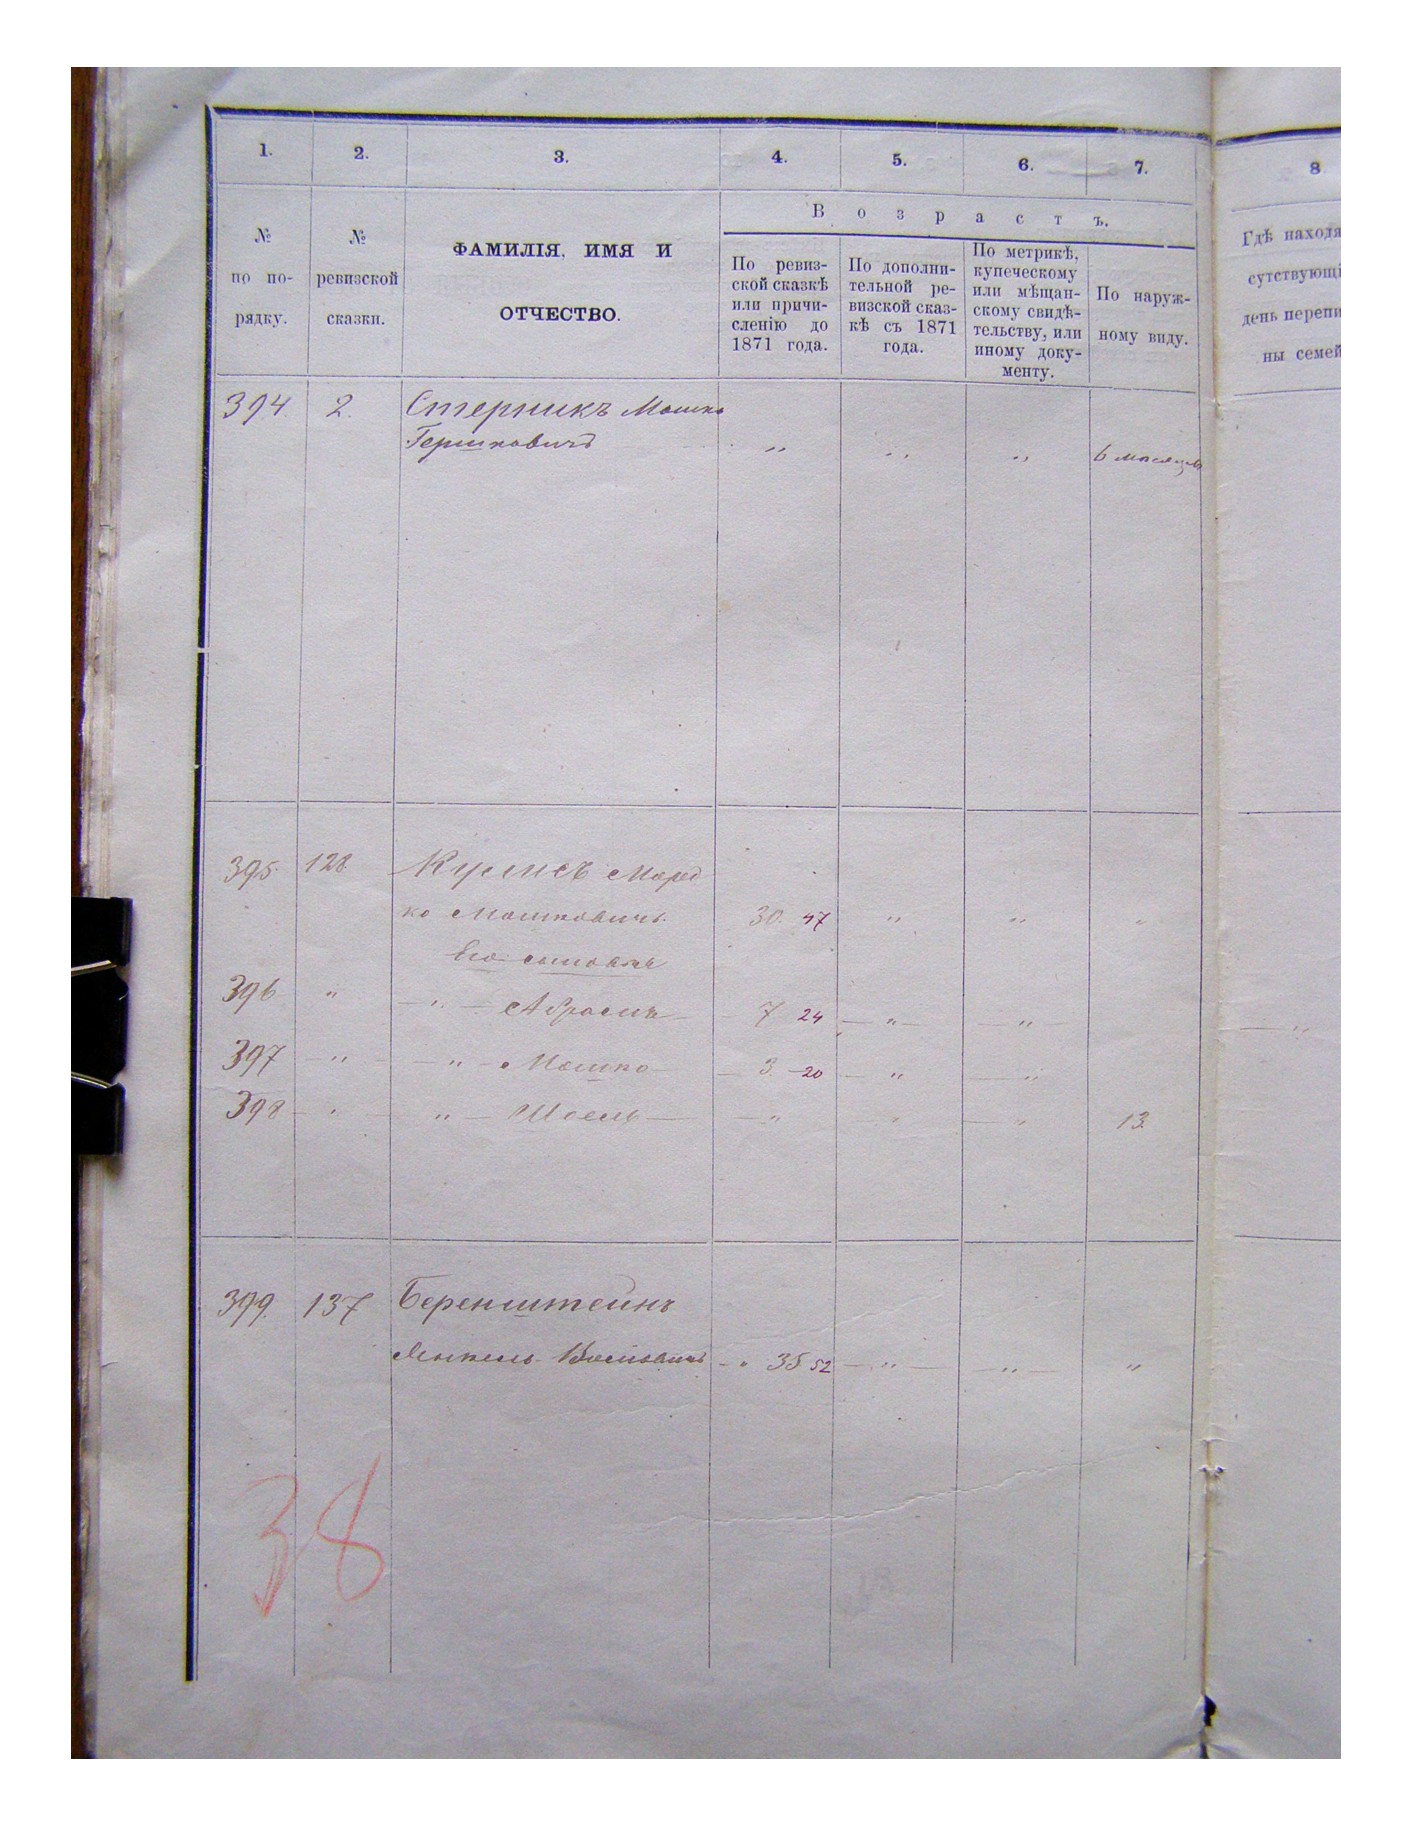 1. 2. 3. 4. 5. 6. 7. 8
Возрастъ.
№ по по-рядку.
№ ревизской сказки.
ФАМИЛІЯ, ИМЯ И
ОТЧЕСТВО.
По ревиз-
ской сказкѣ
или причи-
сленію до
1871 года.
По дополни-
тельной ре-
визской сказ-
кѣ съ 1871
года.
По метрикѣ,
купеческому
или мѣщан-
скому свидѣ-
тельству, или
иному доку-
менту.
По наруж-
ному виду.
Гдѣ находя
сутствующі
день перепи
ны семей
394. 2. Стерникъ Мошко
Гершковичъ " " " 6 месяцъ
395. 128. Мордко
ко Мошковичъ. 30. 47 " " "
Его сыновья
396 " " Абрамъ 7 24 " " "
397 " " Мошко 3. 20 " "
398 " " Шоель " " " 13.
399. 137 Беренштейнъ
Янкель 35 52 " " "
38